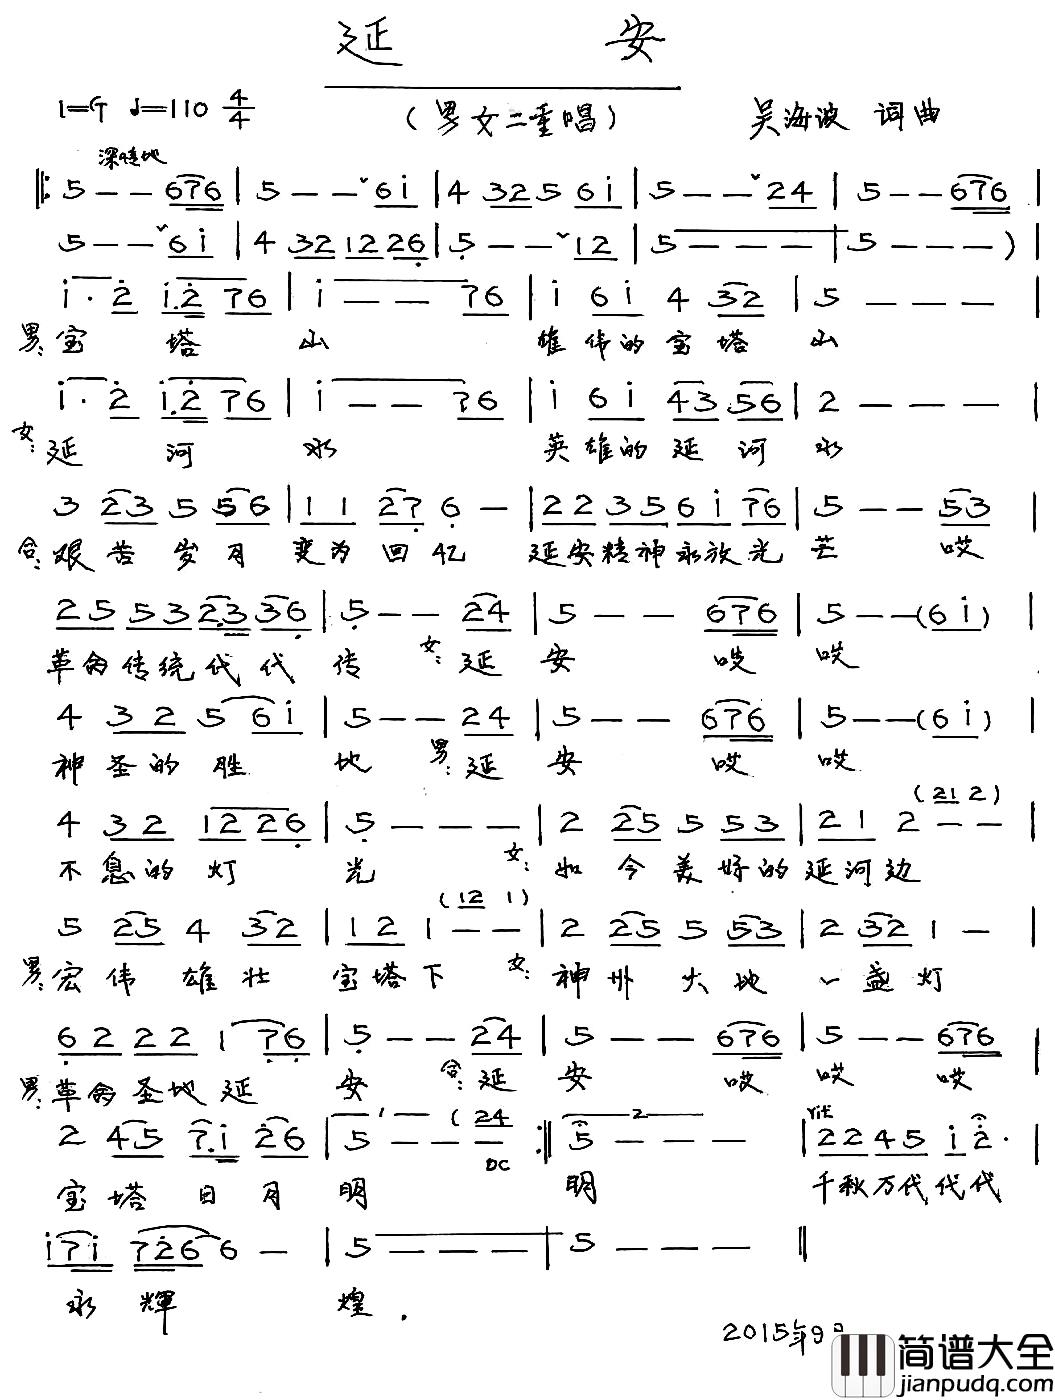 延 安
1=G ♩=110 4/4 （男女二重唱） 吴海波 词曲
深情地
‖: 5 - - 676 | 5 - - ˇ6i | 4 325 6i | 5 - - ˇ24 | 5 - - 676 |
5 - - ˇ6i | 4 32 12 26 | 5 - - ˇ12 | 5 - - - | 5 - - - ) |
i· 2 i.2 76 | i - - 76 | i 6i 4 32 | 5 - - - |
男:宝 塔 山 雄伟的宝塔 山
i· 2 i.2 76 | i - - 76 | i 6i 43 56 | 2 - - - |
女:延 河 水 英雄的延河 水
3 23 5 56 | 11 27 6 - | 22 35 6i 76 | 5 - - 53 |
合:艰苦岁月 变为回忆 延安精神永放光 芒 哎
25 53 2.3 36 | 5 - - 24 | 5 - - 676 | 5 - - (6i) |
革命传统代代 传 女:延 安 哎 哎
4 32 5 6i | 5 - - 24 | 5 - - 676 | 5 - - (6i) |
神圣的胜 地 男:延 安 哎 哎
4 32 12 26 | 5 - - - | 2 25 5 53 | 21 2 - - | (21 2)
不息的灯 光 女:如今美好的延河边
5 25 4 32 | 12 1 - - | 2 25 5 53 | 2 32 1 - | (12 1)
男:宏伟雄壮 宝塔下 女:神州大地 一盏灯
62 22 1 76 | 5 - - 24 | 5 - - 676 | 5 - - 676 |
男:革命圣地延 安 合:延 安 哎 哎 哎
2 45 7.i 26 | 1 5 - - (24 - DC :‖ 2 5 - - - | rit 22 45 i 2· |
宝塔日月 明 明 千秋万代代代
i7i 726 6 - | 5 - - - | 5 - - - ‖
永辉 煌.
2015年9
简谱大全
jianpudq.com